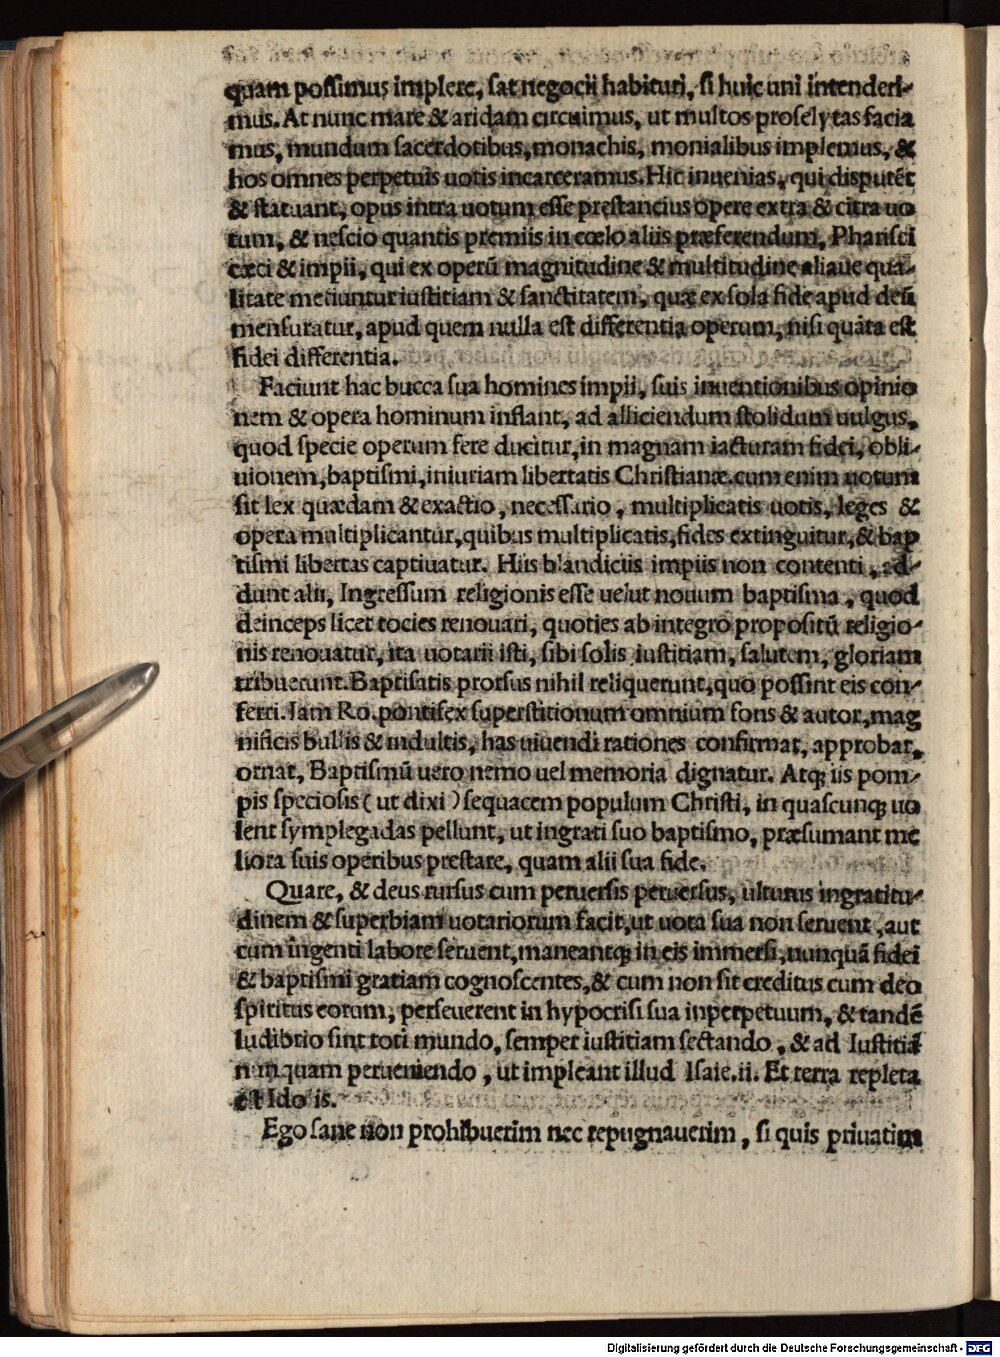 quam possimus implere, sat negocii habituri, si huic uni intenderi-
mus. At nunc mare & aridam circuimus, ut multos proselytas facia
mus, mundum sacerdotibus, monachis, monialibus implemus, &
hos omnes perpetuis uotis incarceramus. Hic inuenias, qui disputēt
& statuant, opus intra uotum esse prestancius opere extra & citra uo
tum, & nescio quantis premiis in cœlo aliis præferendum, Pharisei
cæci & impii, qui ex operū magnitudine & multitudine aliaue qua-
litate metiuntur iustitiam & sanctitatem, quæ ex sola fide apud deū
mensuratur, apud quem nulla est differentia operum, nisi quāta est
fidei differentia.
Faciunt hac bucca sua homines impii, suis inuentionibus opinio
nem & opera hominum inflant, ad alliciendum stolidum uulgus,
quod specie operum fere ducitur, in magnam iacturam fidei, obli-
uionem, baptismi, iniuriam libertatis Christianæ. cum enim uotum
sit lex quædam & exactio, necessario, multiplicatis uotis, leges &
opera multiplicantur, quibus multiplicatis, fides extinguitur, & bap
tismi libertas captiuatur. Hiis blandiciis impiis non contenti, ad-
dunt alii, Ingressum religionis esse uelut nouum baptisma, quod
deinceps licet tocies renouari, quoties ab integro propositū religio-
nis renouatur, ita uotarii isti, sibi solis iustitiam, salutem, gloriam
tribuerunt. Baptisatis prorsus nihil reliquerunt, quo possint eis con-
ferri. Iam Ro. pontifex superstitionum omnium fons & autor, mag
nificis bullis & indultis, has uiuendi rationes confirmat, approbat,
ornat, Baptismū uero nemo uel memoria dignatur. Atq; iis pom-
pis speciosis (ut dixi) sequacem populum Christi, in quascunq; uo
lent symplegadas pellunt, ut ingrati suo baptismo, præsumant me
liora suis operibus prestare, quam alii sua fide.
Quare, & deus rursus cum peruersis peruersus, ulturus ingratitu-
dinem & superbiam uotariorum facit, ut uota sua non seruent, aut
cum ingenti labore seruent, maneantq; in eis immersi, nunquā fidei
& baptismi gratiam cognoscentes, & cum non sit creditus cum deo
spiritus eorum, perseuerent in hypocrisi sua inperpetuum, & tandē
ludibrio sint toti mundo, semper iustitiam sectando, & ad Iustitiā
nunquam perueniendo, ut impleant illud Isaie. ii. Et terra repleta
est Idolis.
Ego sane non prohibuerim nec repugnauerim, si quis priuatim
Digitalisierung gefördert durch die Deutsche Forschungsgemeinschaft - DFG